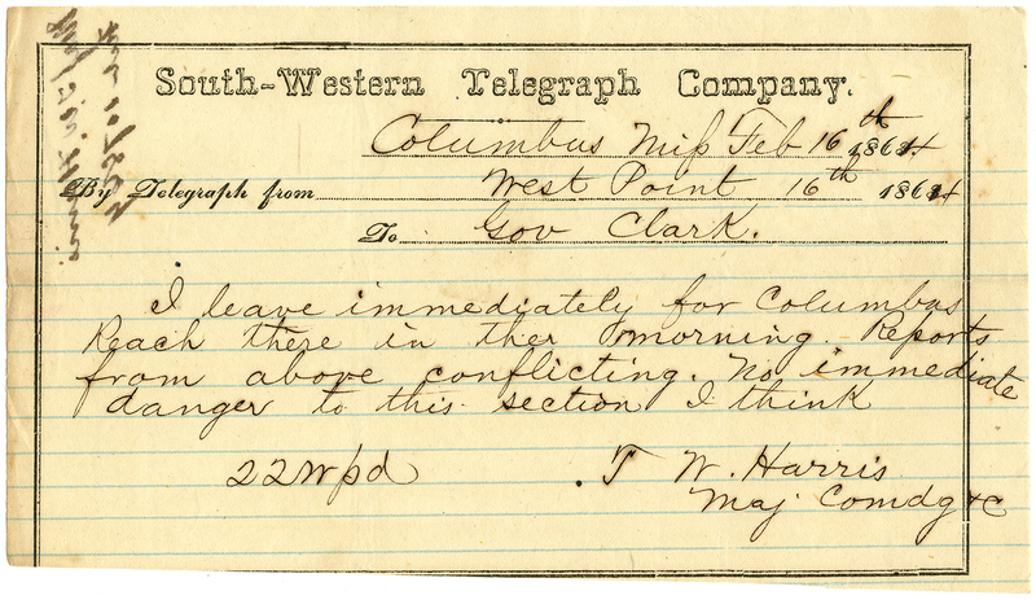 South-Western Telegraph Company.
Columbus Miss Feb 16th 1864
By Telegraph from West Point 16th 1864
To Gov Clark.
I leave immediately for Columbus
Reach there in ther morning. Reports
from above conflicting. No immediate
danger to this section I think
22 W pd
T W. Harris
Maj Comdg &c